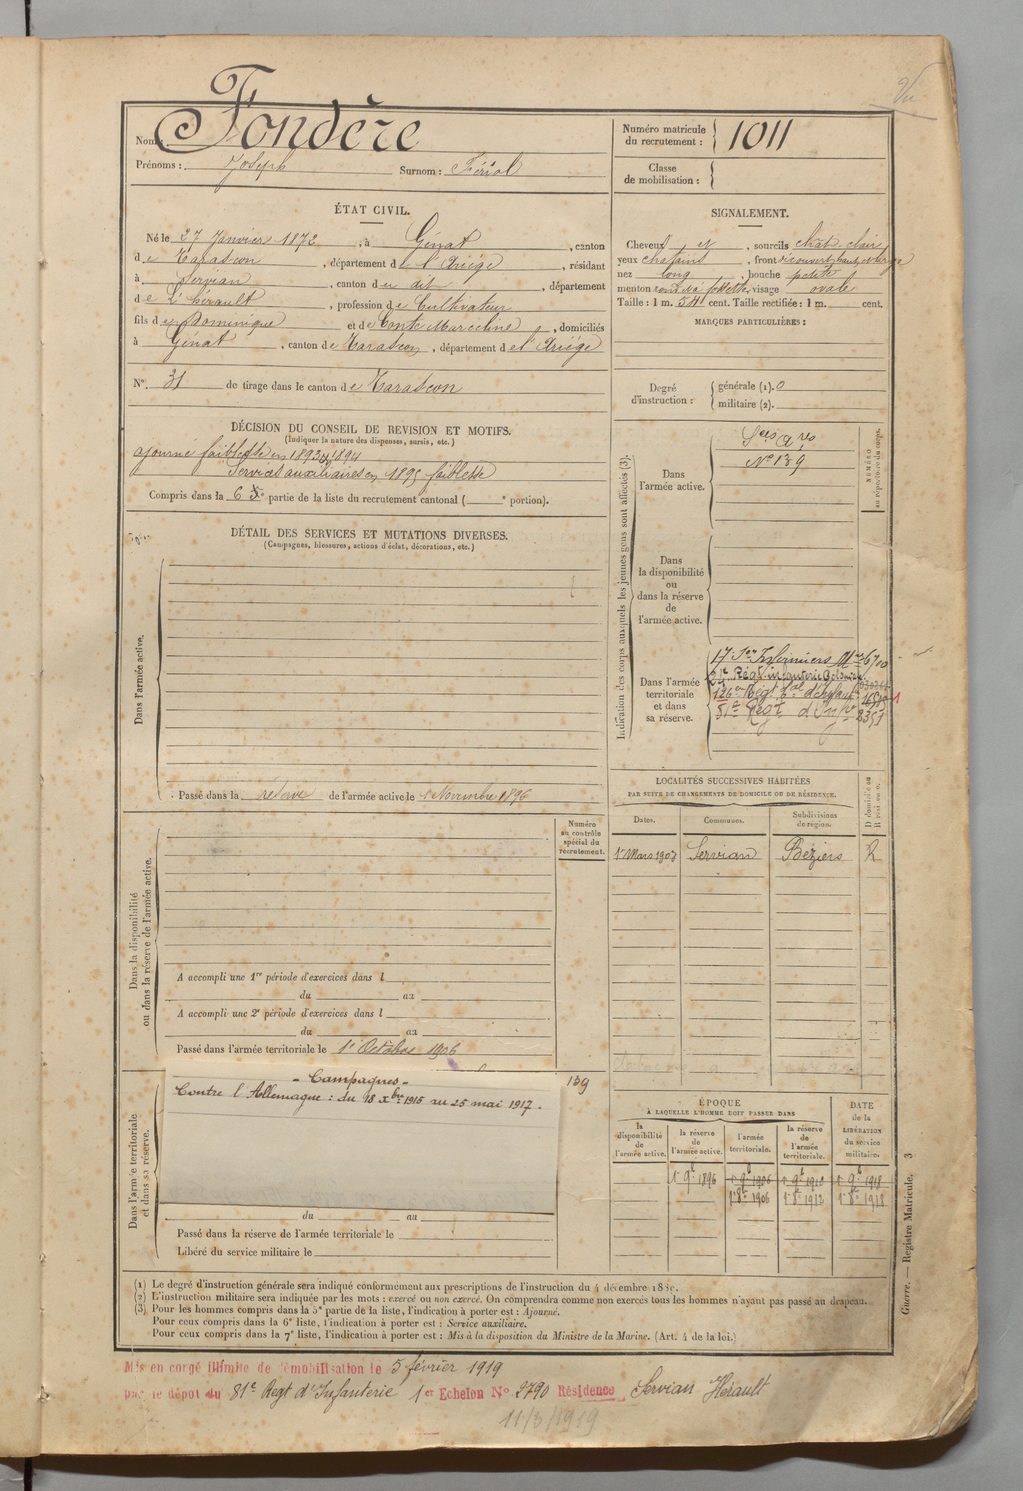 Vu
Nom : Fondère
Prénoms : Joseph Surnom : Fériol
Numéro matricule du recrutement : 1011
Classe de mobilisation :
ÉTAT CIVIL.
Né le 27 Janvier 1872, à Génat, canton
de Tarascon, département de l'Ariège, résidant
à Servian, canton du dit, département
de l'hérault, profession de Cultivateur
fils de Dominique et de Conte Marceline, domiciliés
à Génat, canton de Tarascon, département de l'Ariège
N° 31 de tirage dans le canton de Tarascon
SIGNALEMENT.
Cheveux N, sourcils chat. clair
yeux chatains, front découvert haut
nez long, bouche petite
menton rond à fossette, visage ovale
Taille : 1 m. 54 cent. Taille rectifiée : 1 m. cent.
MARQUES PARTICULIÈRES :
Degré d'instruction : générale (1). 0
militaire (2).
DÉCISION DU CONSEIL DE REVISION ET MOTIFS.
(Indiquer la nature des dispenses, sursis, etc.)
ajourné faiblesse en 1893 & 1894
Services auxiliaires en 1895 faiblesse
Compris dans la 6e partie de la liste du recrutement cantonal ( e portion).
DÉTAIL DES SERVICES ET MUTATIONS DIVERSES.
(Campagnes, blessures, actions d'éclat, décorations, etc.)
Dans l'armée active.
Passé dans la réserve de l'armée active le 1 Novembre 1896
Indication des corps auxquels les jeunes gens sont affectés (3).
NUMÉRO au répertoire du corps.
Dans l'armée active.
Sces Ares
N° 139
Dans la disponibilité ou dans la réserve de l'armée active.
Dans l'armée territoriale et dans sa réserve.
17e Son Infirmiers 6700
Régt infanterie Coloniale
126e Régt tal d'Infant
81e Régt d'Infie 2353
LOCALITÉS SUCCESSIVES HABITÉES
PAR SUITE DE CHANGEMENTS DE DOMICILE OU DE RÉSIDENCE.
Dates. Communes. Subdivisions de région. D domicile ou R résidence.
1er Mars 1907 Servian Béziers R
Numéro au contrôle spécial du recrutement.
Dans la disponibilité ou dans la réserve de l'armée active.
A accompli une 1re période d'exercices dans l
du au
A accompli une 2e période d'exercices dans l
du au
Passé dans l'armée territoriale le 1er Octobre 1906
139
Dans l'armée territoriale et dans sa réserve.
- Campagnes -
Contre l'Allemagne : du 18 Xbre 1915 au 25 mai 1917.
du au
Passé dans la réserve de l'armée territoriale le
Libéré du service militaire le
ÉPOQUE
À LAQUELLE L'HOMME DOIT PASSER DANS
DATE de la LIBÉRATION du service militaire.
la disponibilité de l'armée active. la réserve de l'armée active. l'armée territoriale. la réserve de l'armée territoriale.
1er 9bre 1896 1er 9bre 1906 1er 9bre 1912 1er 9bre 1918
1er 8bre 1906 1er 8bre 1912 1er 8bre 1918
Guerre. — Registre Matricule. 3
(1) Le degré d'instruction générale sera indiqué conformément aux prescriptions de l'instruction du 4 décembre 18
(2) L'instruction militaire sera indiquée par les mots : exercé ou non exercé. On comprendra comme non exercés tous les hommes n'ayant pas passé au drapeau.
(3) Pour les hommes compris dans la 5e partie de la liste, l'indication à porter est : Ajourné.
Pour ceux compris dans la 6e liste, l'indication à porter est : Service auxiliaire.
Pour ceux compris dans la 7e liste, l'indication à porter est : Mis à la disposition du Ministre de la Marine. (Art. 4 de la loi.)
Mis en congé illimité de démobilisation le 5 février 1919
par le dépôt du 81e Regt d'Infanterie 1er Echelon N° 2790 Résidence Servian Hérault
11/3/1919